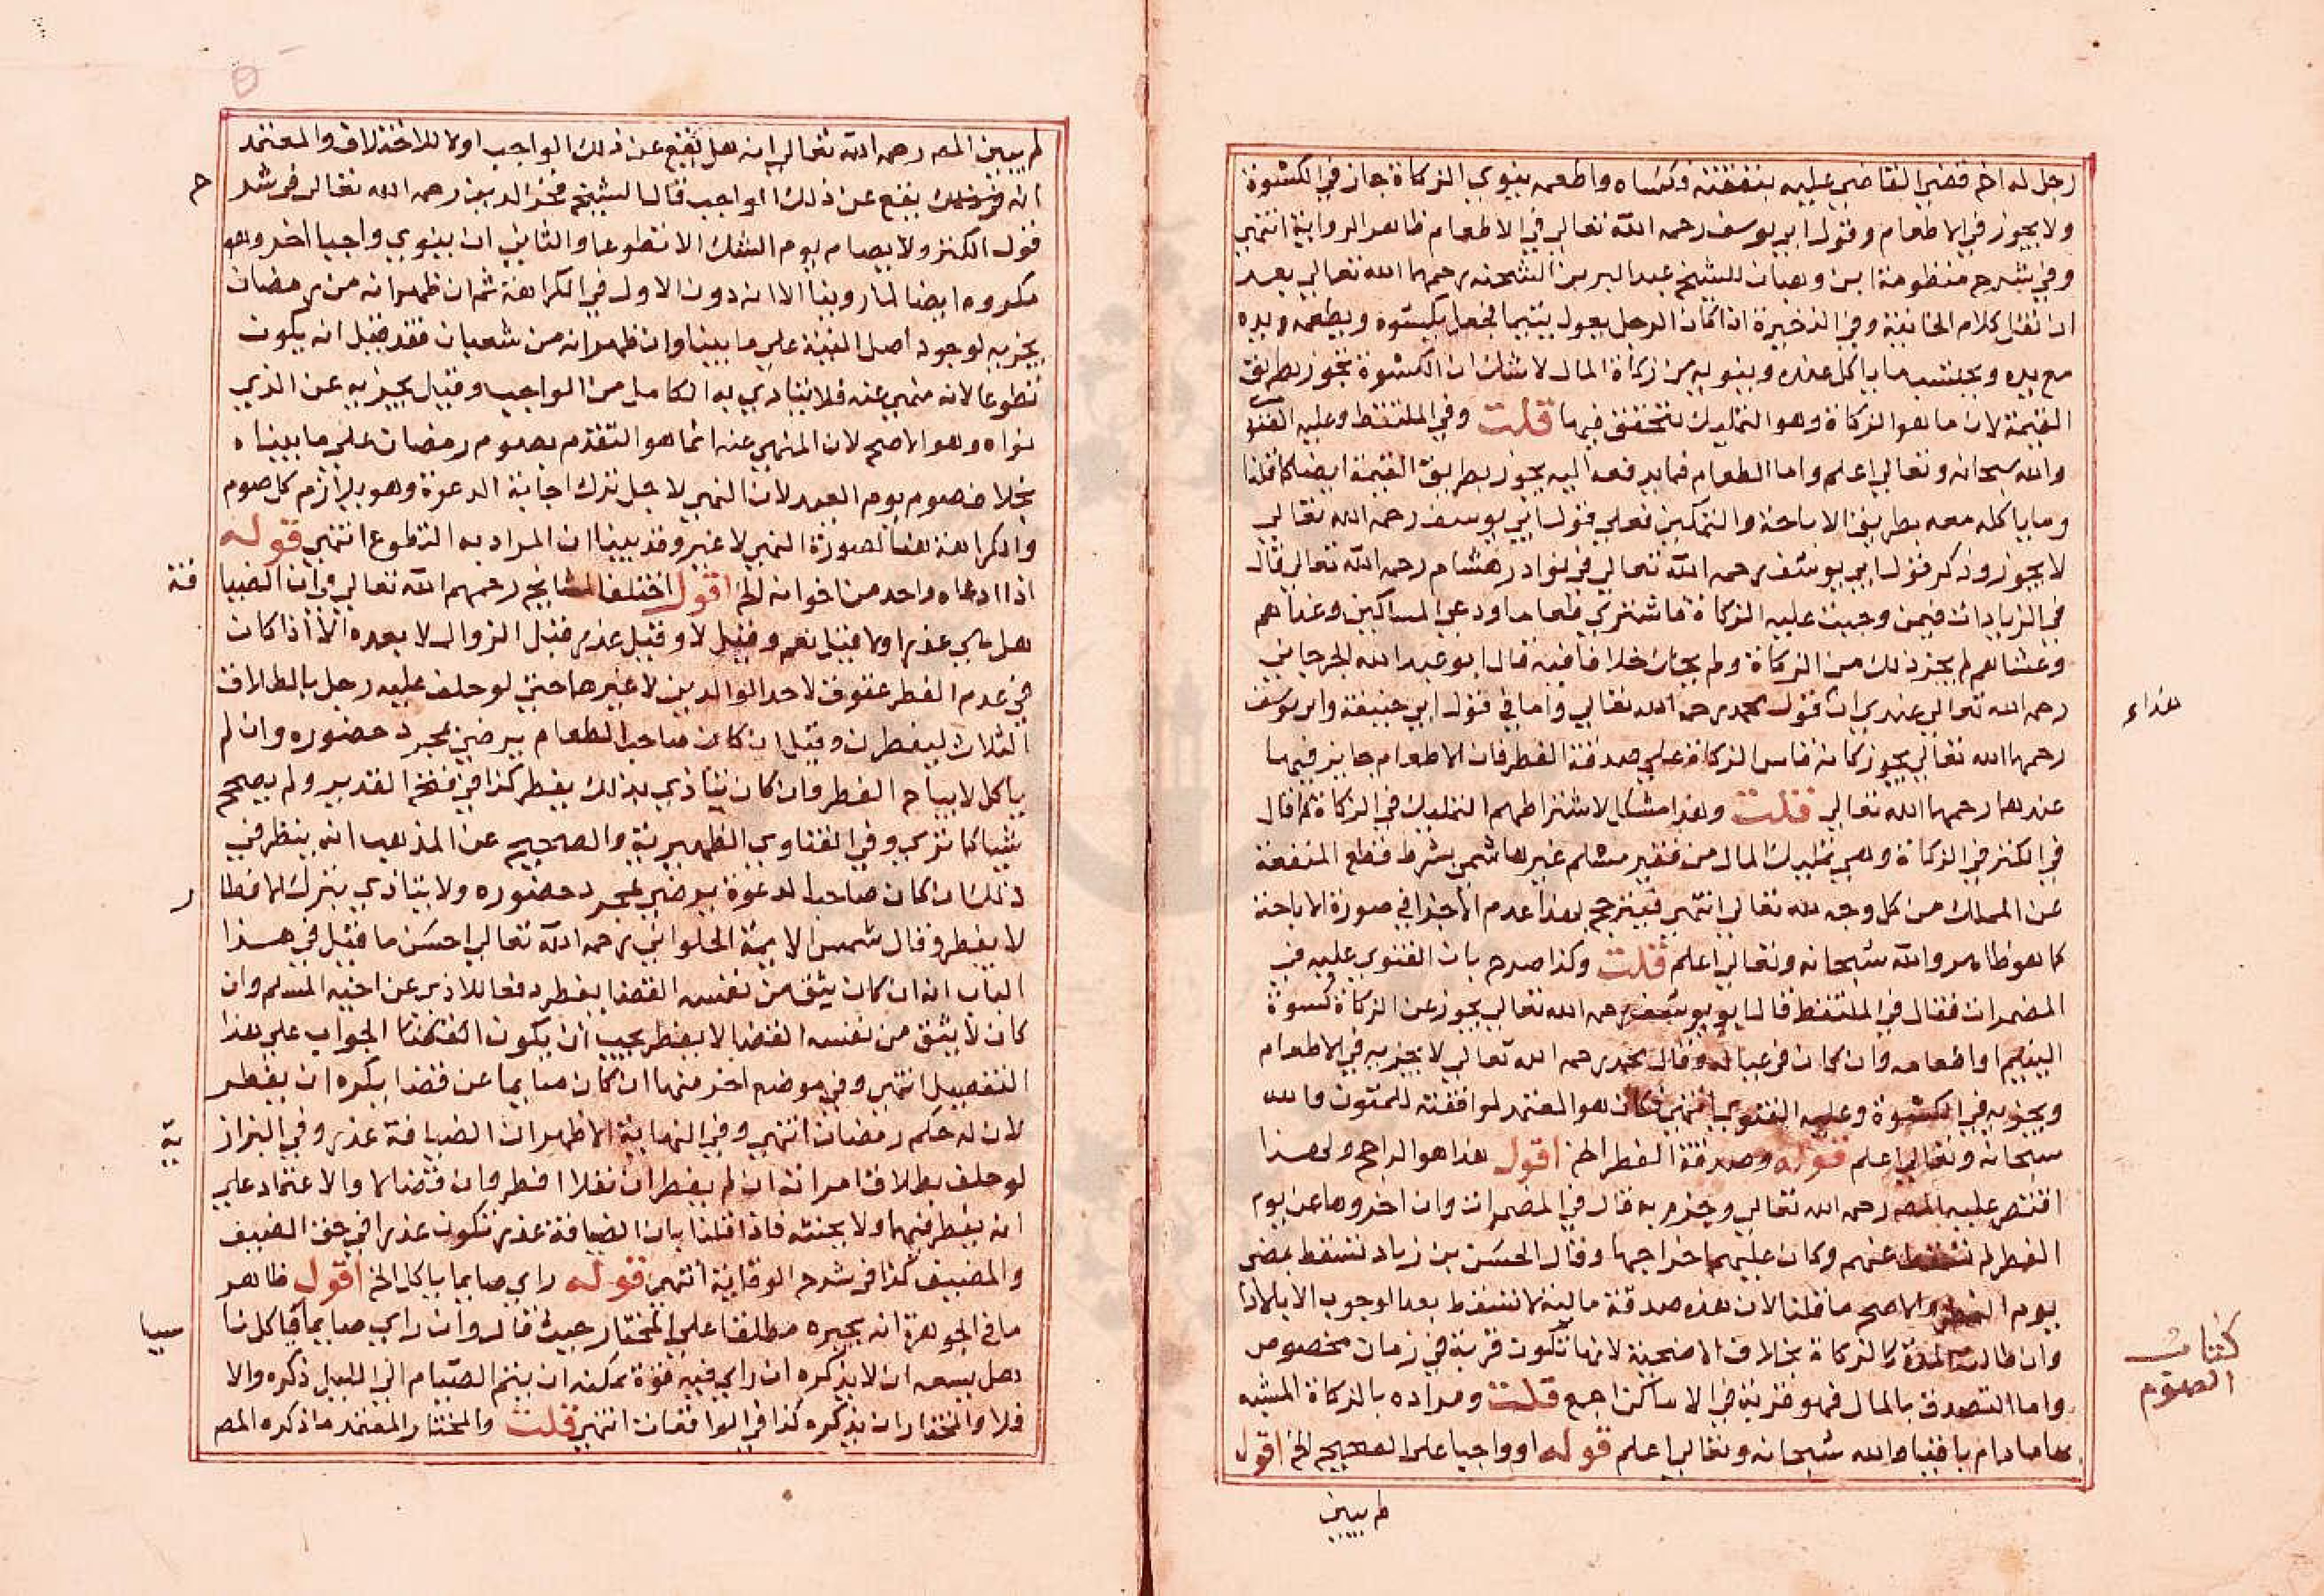 رجل له اخ قضي القاضي عليه بنفقته وكساه واطعمه ينوي الزكاة جاز في الكسوة
ولا يجوز في الاطعام وقول ابي يوسف رحمه الله تعالي في الاطعام ظاهر الرواية انتهي
وفي شرح منظومة ابن وهبان للشيخ عبد البر بن الشحنه رحمهما الله تعالي بعد
ان نقل كلام الخانية وفي الذخيرة اذا كان الرجل يعول يتيما فجعل يكسوه ويطعمه ويده
مع يده ويحتسب ما ياكل عنده وينويه من زكاة المال لا شك ان الكسوة تجوز بطريق
القيمة لان ما هو الزكاة وهو التمليك تتحقق فيها قلت وفي الملتقط وعليه الفتوي
والله سبحانه وتعالي اعلم واما الطعام فما يدفعه اليه يجوز بطريق القيمة ايضا كما قلنا
وما ياكله معه بطريق الاباحة والتمكين فعلي قول ابي يوسف رحمه الله تعالي
لا يجوز وذكر قول ابي يوسف رحمه الله تعالي في نوادر هشام رحمه الله تعالي قال
في الزيادات فيمن وجبت عليه الزكاة فاشتري طعاما ودعي المساكين وغداهم
وعشاهم لم يجز ذلك من الزكاة ولم يحك خلافا فيه قال ابو عبد الله الجرجاني
رحمه الله تعالي عندي ان قول محمد رحمه الله تعالي واما في قول ابي حنيفة وابي يوسف
رحمهما الله تعالي يجوز كانه قاس الزكاة علي صدقة الفطر فان الاطعام جايز فيهما
عندهما رحمهما الله تعالي قلت وهذا مشكل لاشتراطهم التمليك في الزكاة كما قال
في الكنز في الزكاة وهي تمليك المال من فقير مسلم غير هاشمي بشرط قطع المنفعة
عن المملك من كل وجه لله تعالي انتهي فيترجح بهذا عدم الاجزا في صورة الاباحة
كما هو ظاهر والله سبحانه وتعالي اعلم قلت وكذا صرح بان الفتوي عليه في
المضمرات فقال في الملتقط قال ابو يوسف رحمه الله تعالي يجوز عن الزكاة كسوة
اليتيم او اطعامه وان كان في عياله وقال محمد رحمه الله تعالي لا يجزيه في الاطعام
ويجزيه في الكسوة وعليه الفتوي انتهي فكان هو المعتمد لموافقته للمتون والله
سبحانه وتعالي اعلم قوله وصدقة الفطر الخ اقول هذا هو الراجح ولهذا
اقتصر عليه المصر رحمه الله تعالي وجزم به قال في المضمرات وان اخروها عن يوم
الفطر لم تسقط عنهم وكان عليهم اخراجها وقال الحسن بن زياد تسقط بمضي
يوم الفطر والاصح ما قلنا لان هذه صدقة مالية لا تسقط بعد الوجوب الا بالادا
وان طالت المدة كالزكاة بخلاف الاضحية لانها تكون قربة في زمان مخصوص
واما التصدق بالمال فهو قربة في الاماكن اجمع قلت ومراده بالزكاة المشبه
بها ما دام باقيا والله سبحانه وتعالي اعلم قوله او واجبا علي الصحيح الخ اقول
لم يبين
غداء
كتاب
الصوم
لم يبين المصر رحمه الله تعالي انه هل يقع عن ذلك الواجب اولا للاختلاف والمعتمد
انه يقع عن ذلك الواجب قال الشيخ فخر الدين رحمه الله تعالي في شر
ح
قول الكنز ولا يصام يوم الشك الا تطوعا والثاني ان ينوي واجبا اخر وهو
مكروه ايضا لما روينا الا انه دون الاول في الكراهة ثم ان ظهر انه من رمضان
يجزيه لوجود اصل النية علي ما بينا وان ظهر انه من شعبان فقد قيل انه يكون
تطوعا لانه منهي عنه فلا يتادي به الكامل من الواجب وقيل يجزيه عن الذي
نواه وهو الاصح لان المنهي عنه انما هو التقدم بصوم رمضان علي ما بيناه
بخلاف صوم يوم العيد لان النهي لاجل ترك اجابة الدعوة وهو يلازم كل صوم
والكراهة هنا لصورة النهي لا غير وقد بينا ان المراد به التطوع انتهي قوله
اذا ادعاه واحد من اخوانه الخ اقول اختلف المشايخ رحمهم الله تعالي في ان الضيا
فة
هل هي عذر اولا قيل نعم وقيل لا وقيل عذر قبل الزوال لا بعده الا اذا كان
في عدم الفطر عقوق لاحد الوالدين لا غيرها حتي لو حلف عليه رجل بالطلاق
الثلاث ليفطرن وقيل ان كان صاحب الطعام يرضي بمجرد حضوره وان لم
ياكل لا يباح الفطر وان كان يتاذي بذلك يفطر كذا في فتح القدير ولم يصحح
شيا كما تري وفي الفتاوي الظهيرية والصحيح عن المذهب انه ينظر في
ذلك ان كان صاحب الدعوة يرضي بمجرد حضوره ولا يتاذي بترك الافطا
ر
لا يفطر وقال شمس الايمة الحلواني رحمه الله تعالي احسن ما قيل في هذا
الباب انه ان كان يثق من نفسه القضا يفطر دفعا للاذي عن اخيه المسلم وان
كان لا يثق من نفسه القضا لا يفطر يجب ان يكون الجواب علي هذا
التفصيل انتهي وفي موضع اخر منها ان كان صايما عن قضا يكره ان يفطر
لان له حكم رمضان انتهي وفي النهاية الاظهر ان الضيافة عذر وفي البزاز
ية
لو حلف بطلاق امراته ان لم يفطر ان نفلا افطر وان قضا لا والاعتماد علي
انه يفطر فيهما ولا يحنثه فاذا قلنا بان الضيافة عذر تكون عذرا في حق الضيف
والمضيف كذا في شرح الوقاية انتهي قوله راي صايما ياكل الخ اقول ظاهر
ما في الجوهرة انه يخبره مطلقا علي المختار حيث قال وان راي صايما ياكل نا
سيا
هل يسعه ان لا يذكره ان راي فيه قوة يمكنه ان يتم الصيام الي الليل ذكره والا
فلا والمختار ان يذكره كذا في الواقعات انتهي قلت والمختار المعتمد ما ذكره المصر